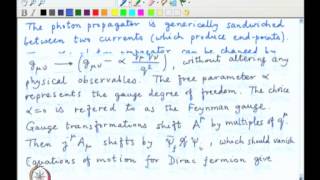 The photon propagator is generically sandwiched
between two currents (which produce end-points).
propagator can be changed by
g_μν → (g_μν - α q_μ q_ν / q²), without altering any
physical observables. The free parameter α
represents the gauge degree of freedom. The choice
α=0 is refered to as the Feynman gauge.
Gauge transformations shift A^μ by multiples of q^μ.
Then γ^μ A_μ shifts by ψ̄_f q̸ ψ_i, which should vanish
Equations of motion for Dirac fermion give